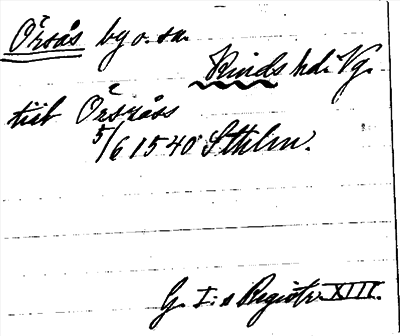 Örsås by o. sn.
Kinds hd. Vg.
till Örsåss
5/6 1540 Sthlm.
G. I:s Registr. XIII.